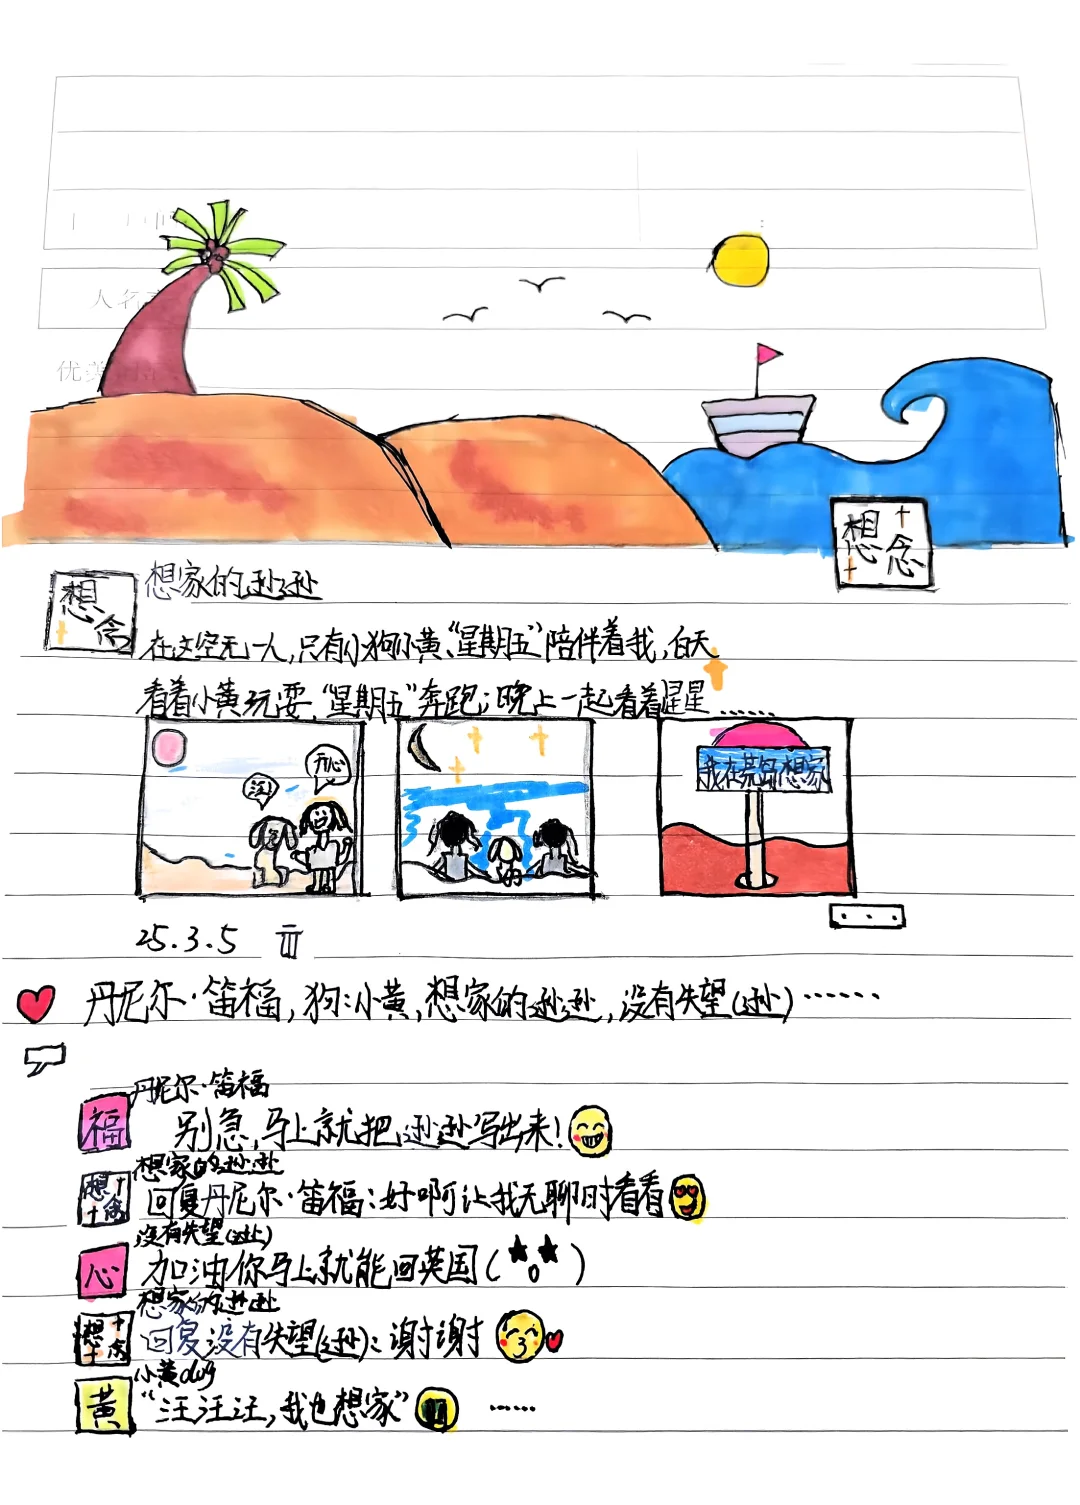 人名
优美
想念
想念
想家的逊逊
在这空无一人,只有小狗小黄、“星期五”陪伴着我,白天
看着小黄玩耍,“星期五”奔跑;晚上一起看着星星……
汪!
开心
我在荒岛想家
25.3.5
丹尼尔·笛福,狗:小黄,想家的逊逊,没有失望(逊)……
丹尼尔·笛福
福 别急,马上就把逊逊写出来!
想家的逊逊
想念 回复丹尼尔·笛福:好啊让我无聊时看看
没有失望(逊)
心 加油你马上就能回英国(★o★)
想家的逊逊
想念 回复没有失望(逊):谢谢
小黄dog
黄 “汪汪汪,我也想家” ……